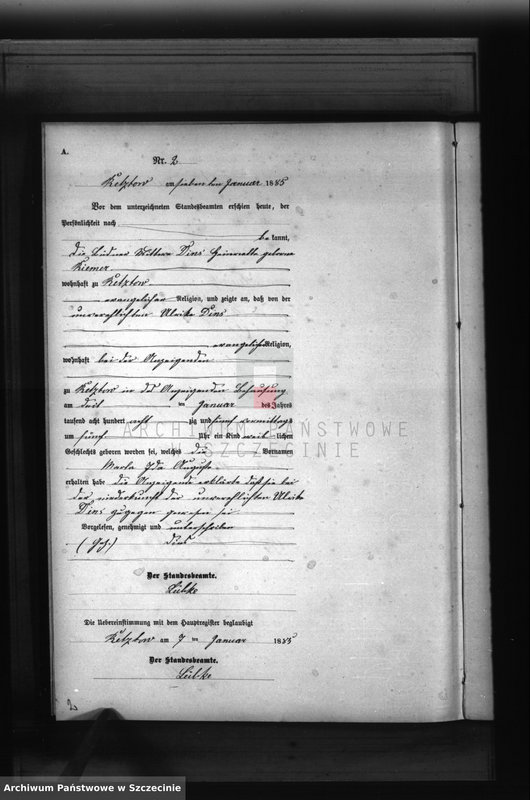 A.
Nr. 2
Ketzlow am siebenten Januar 1885
Vor dem unterzeichneten Standesbeamten erschien heute, der
Persönlichkeit nach
be kannt,
die Büdner Wittwe Dins Henriette geborne
Kiemer
wohnhaft zu
evangelischer Religion, und zeigte an, daß von der
unverehelichten Ulrike Dins
evangelischer Religion,
wohnhaft bei der Anzeigenden
zu in der Anzeigenden Behausung
am drit ten Januar des Jahres
tausend acht hundert acht zig und fünf vormittags
um fünf Uhr ein Kind weib lichen
Geschlechts geboren worden sei, welches die Vornamen
Marla Ida Auguste
erhalten habe die Anzeigende erklärte daß sie bei
der Niederkunft der unverehelichten Ulrike
Dins zugegen gewesen sei
Vorgelesen, genehmigt und unterschrieben
(Gez.) Dins
Der Standesbeamte.
Lübke
Die Uebereinstimmung mit dem Hauptregister beglaubigt
am 7 ten Januar 1885
Der Standesbeamte.
Lübke
2.
ARCHIWUM PAŃSTWOWE
W SZCZECINIE
Archiwum Państwowe w Szczecinie